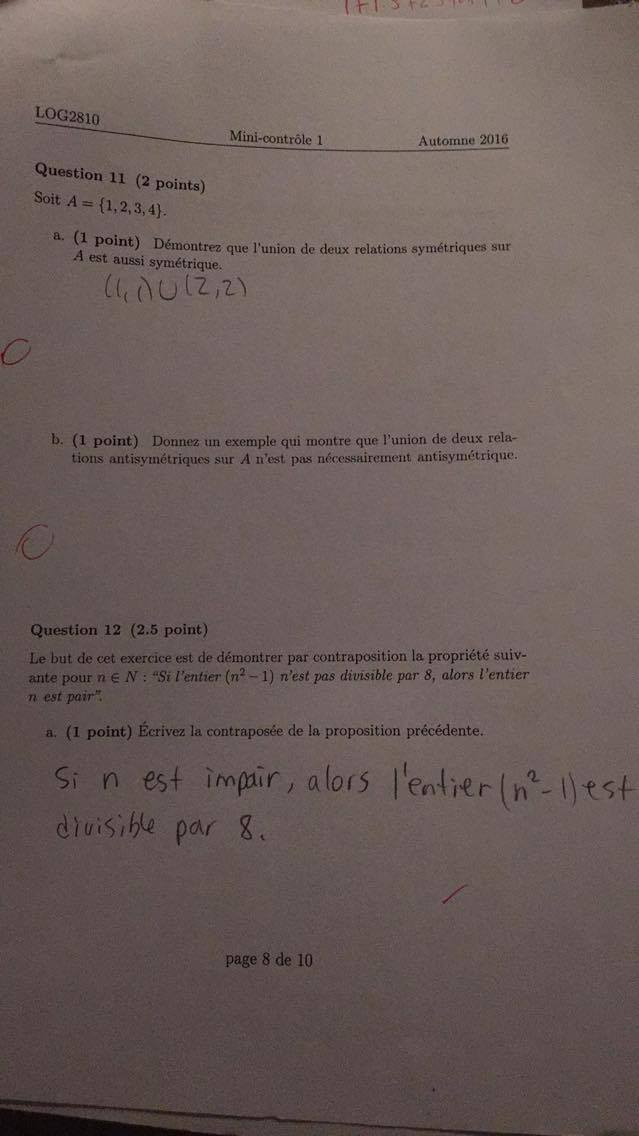 LOG2810
Mini-contrôle 1
Automne 2016
Question 11 (2 points)
Soit A = {1, 2, 3, 4}.
a. (1 point) Démontrez que l'union de deux relations symétriques sur
A est aussi symétrique.
(1,1)∪(2,2)
0
b. (1 point) Donnez un exemple qui montre que l'union de deux rela-
tions antisymétriques sur A n'est pas nécessairement antisymétrique.
0
Question 12 (2.5 point)
Le but de cet exercice est de démontrer par contraposition la propriété suiv-
ante pour n ∈ N : "Si l'entier (n² − 1) n'est pas divisible par 8, alors l'entier
n est pair".
a. (1 point) Écrivez la contraposée de la proposition précédente.
Si n est impair, alors l'entier (n²-1) est
divisible par 8.
page 8 de 10